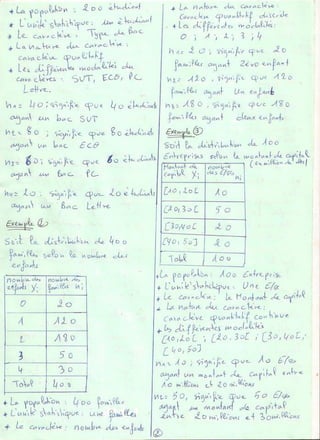 * La population : 200 étudiant
* L'unité statistique : un étudiant
* Le caractère : Type de Bac
* La nature du caractère :
caractère qualitatif
* Les différentes modalités du
caractères : SVT, ECO, PC
Lettre.
n1 = 40 ; signifie que 40 étudiants
ayant un bac SVT
n2 = 80 ; signifie que 80 étudiants
ayant un bac ECO
n3 = 60 ; signifie que 60 étudiants
ayant un bac PC
n4 = 20 ; signifie que 20 étudiants
ayant un Bac Lettre
Exemple ②
Soit la distribution de 400
familles selon le nombre des
enfants
nombre des enfants Xi | nombre des familles ni
0 | 20
1 | 120
2 | 180
3 | 50
4 | 30
Total | 400
* La population : 400 familles
* L'unité statistique : une famille
* Le caractère : nombre des enfants
* La nature du caractère :
Caractère quantitatif discrète
* Les différentes modalités :
0 ; 1 ; 2 ; 3 ; 4
n1 = 20 ; signifie que 20
familles ayant zéro enfant
n2 = 120 . signifie que 120
familles ayant un enfant
n3 = 180 . signifie que 180
familles ayant deux enfants
Exemple ③
Soit la distribution de 100
Entreprises selon le montant de capital
Montant de capital Xi | nombre des E/ses ni
[10, 20[ | 10
[20, 30[ | 50
[30, 40[ | 20
[40, 50] | 20
Total | 100
* La population : 100 Entreprise
* L'unité statistique : Une E/se
* Le caractère : Le Montant de capital
* La nature du caractère :
Caractère quantitatif continue
* Les différentes modalités
[10, 20[ ; [20, 30[ ; [30, 40[ ;
[40, 50]
n1 = 10 ; signifie que 10 E/ses
ayant un montant de capital entre
10 millions et 20 millions
n2 = 50, signifie que 50 E/ses
ayant un montant de capital
entre 20 millions et 30 millions
②